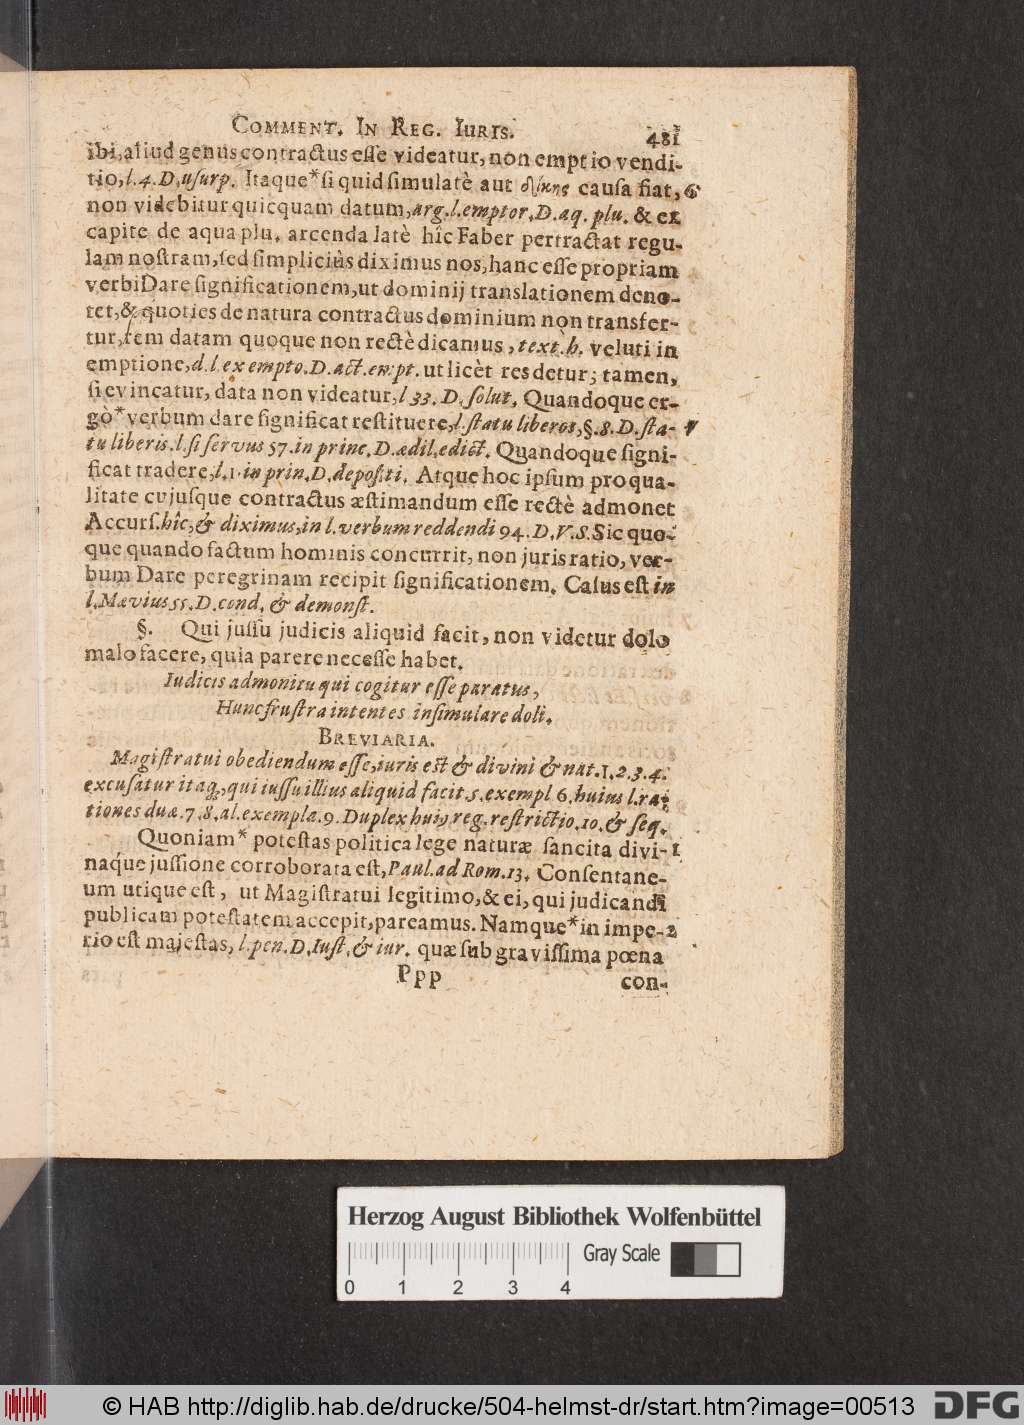 COMMENT. IN REG. IURIS. 481
ibi, aliud genus contractus esse videatur, non emptio vendi-
tio, l. 4. D. usurp. Itaque * si quid simulatè aut δίκης causa fiat, 6
non videbitur quicquam datum, arg. l. emptor, D. aq. plu. & ex
capite de aqua plu. arcenda latè hîc Faber pertractat regu-
lam nostram, sed simpliciùs diximus nos, hanc esse propriam
verbi Dare significationem, ut dominij translationem deno-
tet, & quoties de natura contractus dominium non transfer-
tur, rem datam quoque non rectè dicamus, text. h. veluti in
emptione, d. l. ex empto. D. act. empt. ut licèt res detur; tamen,
si evincatur, data non videatur, l 33. D. solut. Quandoque er-
gò * verbum dare significat restituere, l. statu liberos, §. 8. D. sta-
tu liberis. l. si servus 57. in princ. D. ædil. edict. Quandoque signi-
ficat tradere, l. 1. in prin. D. depositi. Atque hoc ipsum pro qua-
litate cujusque contractus æstimandum esse rectè admonet
Accurs. hîc, & diximus, in l. verbum reddendi 94. D. V. S. Sic quo-
que quando factum hominis concurrit, non juris ratio, ver-
bum Dare peregrinam recipit significationem. Casus est in
l. Mævius 55. D. cond. & demonst.
§. Qui jussu judicis aliquid facit, non videtur dolo
malo facere, quia parere necesse habet.
Iudicis admonitu qui cogitur esse paratus,
Hunc frustra intentes insimulare doli.
BREVIARIA.
Magistratui obediendum esse, iuris est & divini & nat. 1. 2. 3. 4.
excusatur itaq;, qui iussu illius aliquid facit. 5. exempl 6. huius l. ra-
tiones duæ. 7. 8. al. exempla. 9. Duplex hui⁹ reg. restrictio. 10. & seq.
Quoniam * potestas politica lege naturæ sancita divi- 1
naque jussione corroborata est, Paul. ad Rom. 13. Consentane-
um utique est, ut Magistratui legitimo, & ei, qui judicandi
publicam potestatem accepit, pareamus. Namque * in impe- 2
rio est majestas, l. pen. D. Iust. & iur. quæ sub gravissima pœna
Ppp con-
Herzog August Bibliothek Wolfenbüttel
Gray Scale
0 1 2 3 4
© HAB http://diglib.hab.de/drucke/504-helmst-dr/start.htm?image=00513 DFG